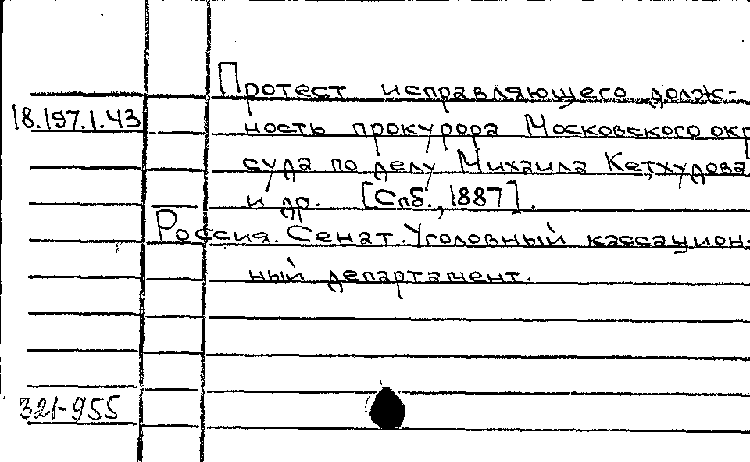 Протест исправляющего долж-
18.197.1.43
ность прокурора Московского окр
суда по делу Михаила Кетхудова
и др. [Спб., 1887].
Россия. Сенат. Уголовный кассацион-
ный департамент.
321-955